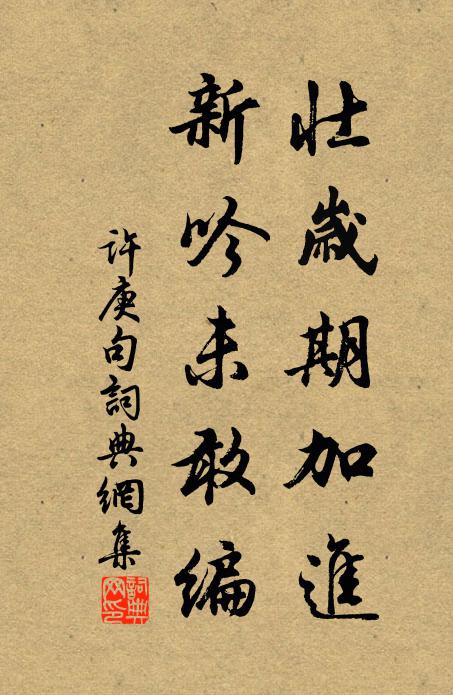 壯歲期加進
新吟未敢編
許庚句詞典網集
詞典
网印